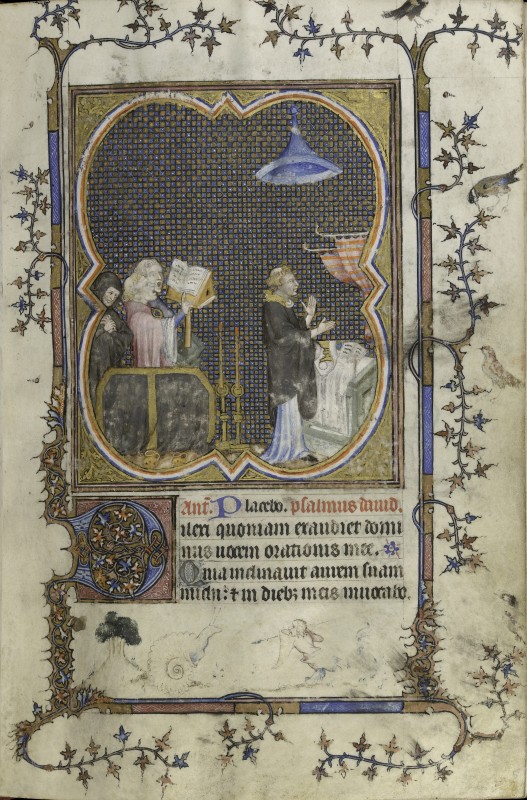 Ant. Placebo. psalmus david.
Dilexi quoniam exaudiet domi
nus uocem orationis mee.
Quia inclinauit aurem suam
michi: ⁊ in dieb; meis inuocabo.